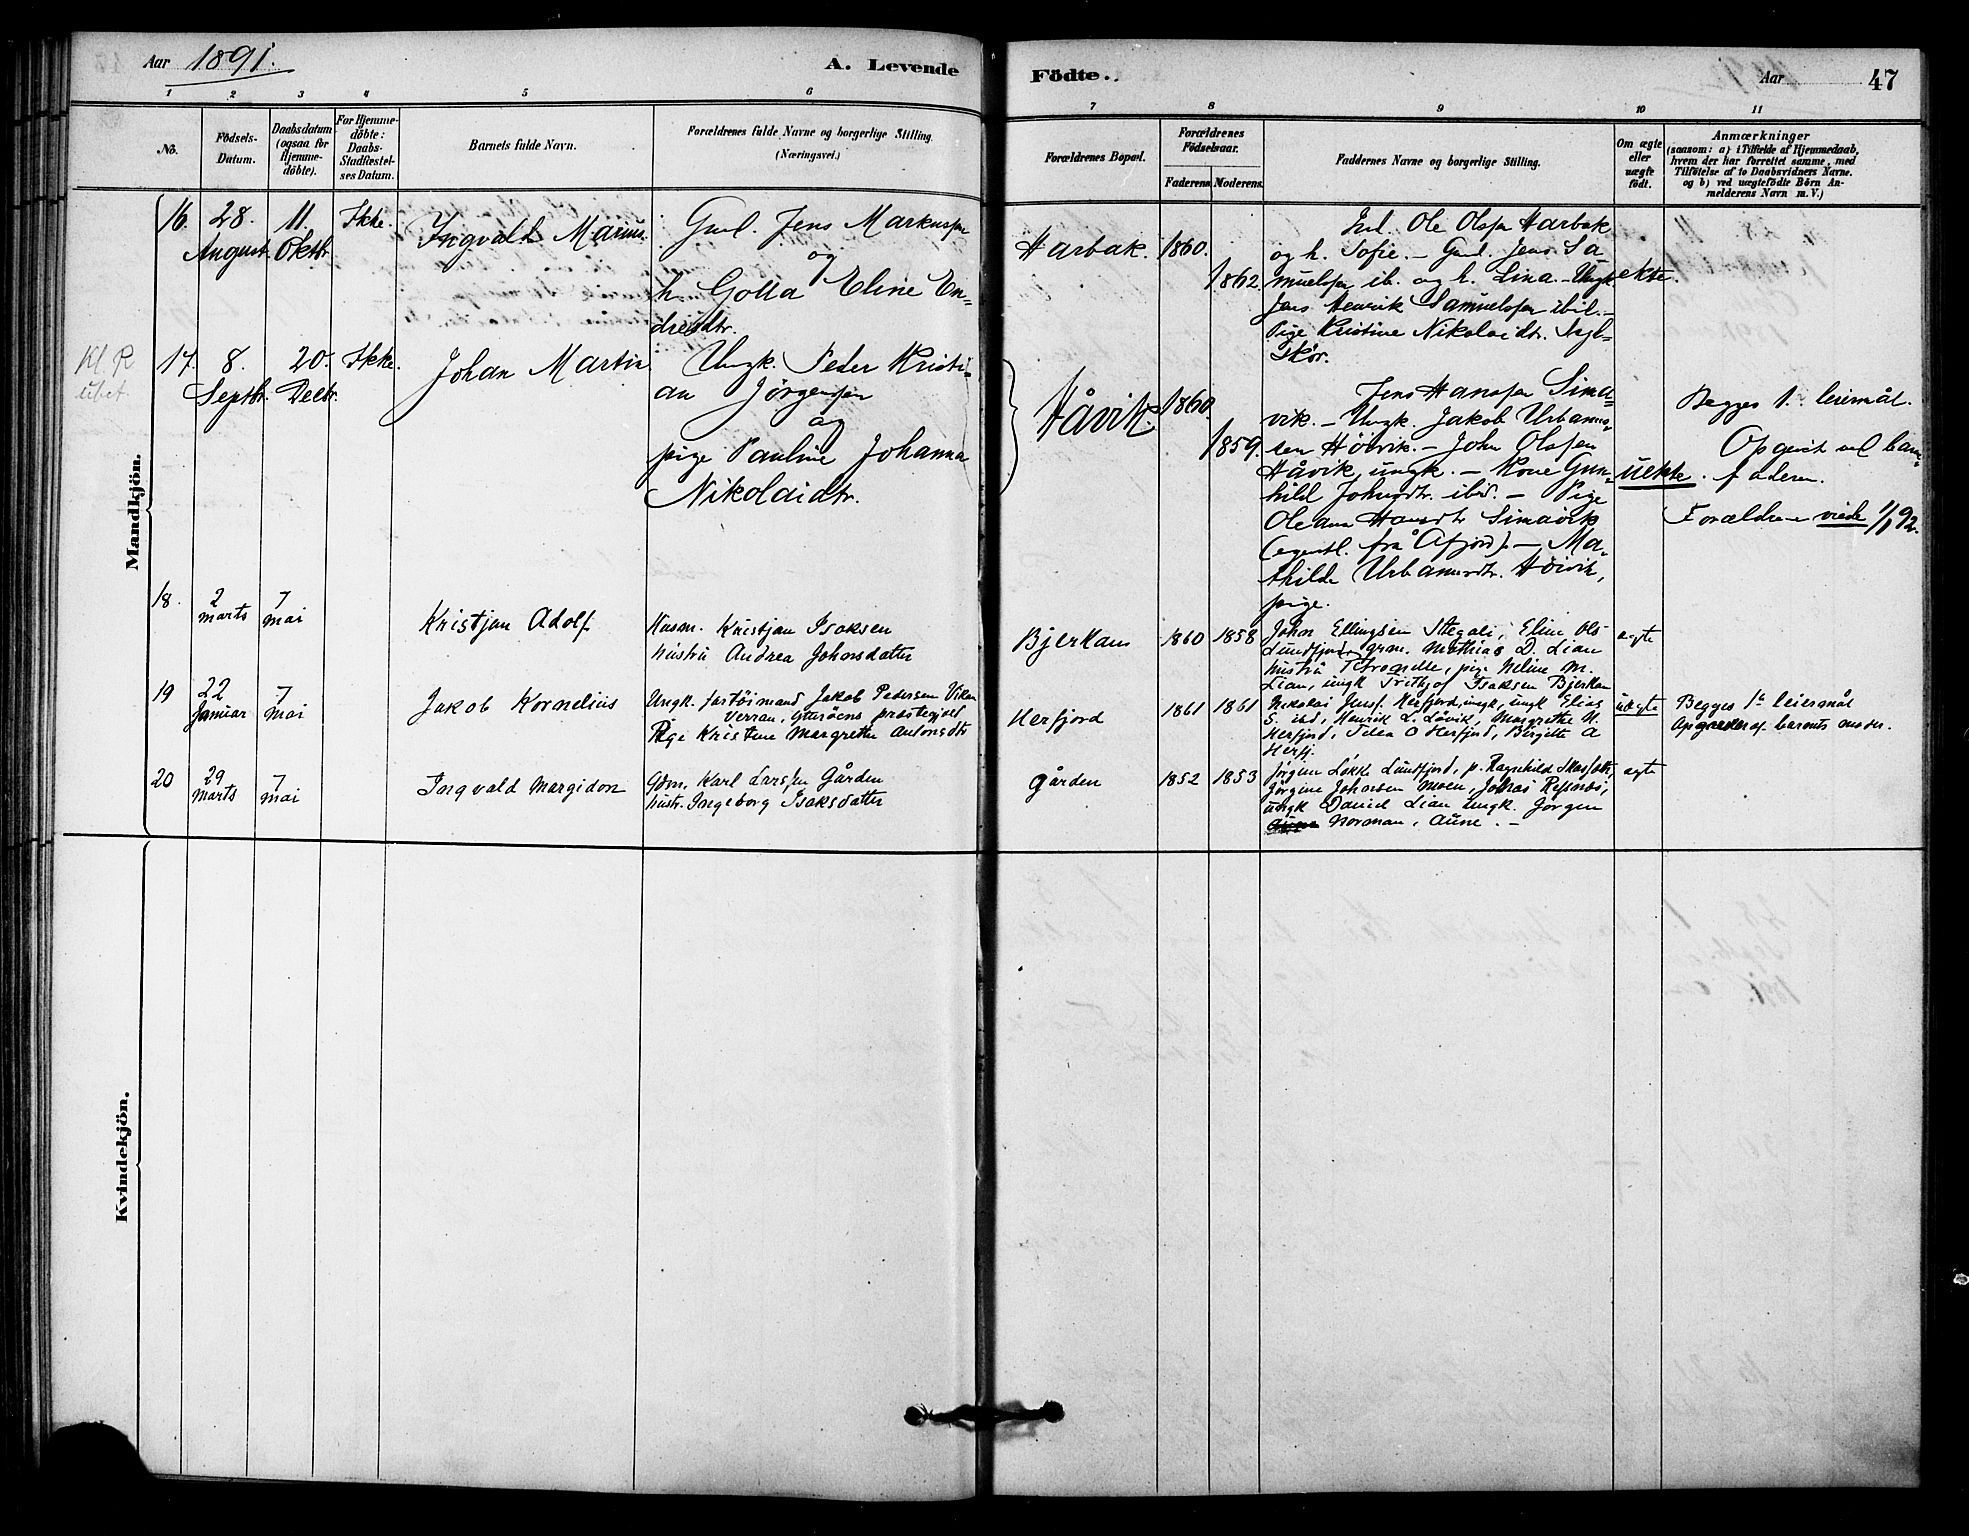 Aar 1891.
A. Levende
Födte.
Aar
47
1
2
3
4
5
6
7
8
9
10
11
No.
Födsels-
Datum.
Daabsdatum
(ogsaa for
Hjemme-
döbte).
For Hjemme-
döbte:
Daabs-
Stadfæstel-
ses Datum.
Barnets fulde Navn.
Forældrenes fulde Navne og borgerlige Stilling.
(Næringsvei.)
Forældrenes Bopæl.
Forældrenes
Födselsaar.
Faderens.
Moderens.
Faddernes Navne og borgerlige Stilling.
Om ægte
eller
uægte
födt.
Anmærkninger
(saasom: a) i Tilfælde af Hjemmedaab,
hvem der har forrettet samme, med
Tilföielse af to Daabsvidners Navne.
og b) ved uægtefödte Börn An-
melderens Navn m.V.)
Mandkjön.
16.
28.
August.
11.
Oktbr.
Ikke.
Ingvald Marius
Gmd. Jens Markussen
og
h. Golla Eline En-
dresdtr.
Harbak.
1860.
1862.
Ind. Ole Olsen Harbak
og h. Sofie. – Gmd. Jens Sa-
muelsen ib. og h. Lina. – Ungk.
Jens Henrik Samuelsen ibid. –
Pige Kristine Nikolaidtr.
ekte.
17.
8.
Septbr.
20.
Decbr.
Ikke.
Johan Martin
Ungk. Peder Kristi-
an Jørgensen
og
pige Pauline Johanna
Nikolaidtr.
Håvik.
1860.
1859.
Jens Hansen Sima-
vik. – Ungk. Jakob Urbanus-
sen Höivik. – John Olsen
Håvik, ungk. – Kone Gun-
hild Johnsdtr. ibid. – Pige
Oleana Hansdtr Simavik
(egentl. frå Åfjord). – Ma-
thilde Urbanusdtr. Höivik,
pige.
uekte.
Begges 1. leiermål.
Opgivet ved barne-
faderen.
Forældrene viede 1/1 92.
18.
2
marts
7
mai
Kristjan Adolf
Husm. Kristjan Isaksen
hustru Andrea Johnsdatter
Bjerkan
1860
1858
Johan Ellingsen Stegali, Eline Ols
Lundfjord, grm. Mathias D. Lian
hustru Petronelle, pige Neline M.
Lian, ungk Frithjof Isaksen Bjerkan
ægte
19
22
Januar
7
mai
Jakob Kornelius
Ungk. fartöimand Jakob Pedersen Vikan
Verran, Ytteröens præstegjeld
Pige Kristine Margrethe Antonsdtr
Herfjord
1861
1861
Nikolai Jensf. Herfjord, ungk, ungk Elias
S. ibd, Henrik L. Lövik, Margrethe N.
Herfjord, O Herfjord, Birgitte A
Herfj.
uægte
Begges 1ste leiermål
af barnets moder.
20
29
Marts
7
mai
Ingvald Margidon
Gdm. Karl Larssen Gården
hustr. Ingeborg Isaksdatter
Gården
1852
1853
Jörgine Løkke Lundfjord, p. Ragnhild
Jörgine Johnsen Moen,
ungk Daniel Lian ungk. Jörgen
Norman, Aune. –
ægte
Kvindekjön.